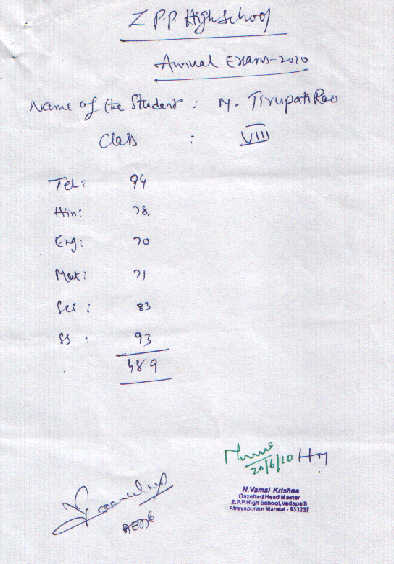 Z P P High School
Annual Exams-2010
Name of the Student : M. Tirupati Rao
Class : VIII
Tel: 94
Hin: 78
Eng: 70
Mat: 71
Sci : 83
SS : 93
489
20/6/10 HM
N.Vamsi Krishna
Gazetted Head Master
Z.P.P High School,
Mandal -